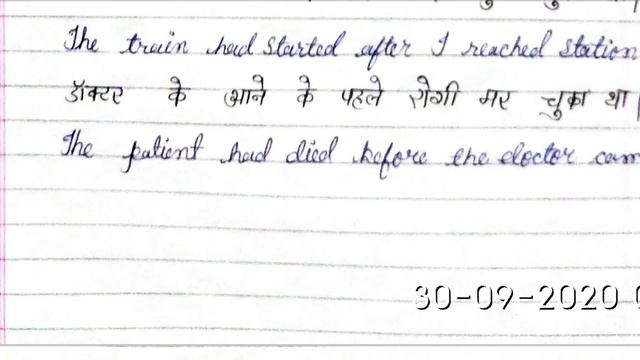 The train had started after I reached station
डॉक्टर के आने के पहले रोगी मर चुका था।
The patient had died before the doctor cam
30-09-2020